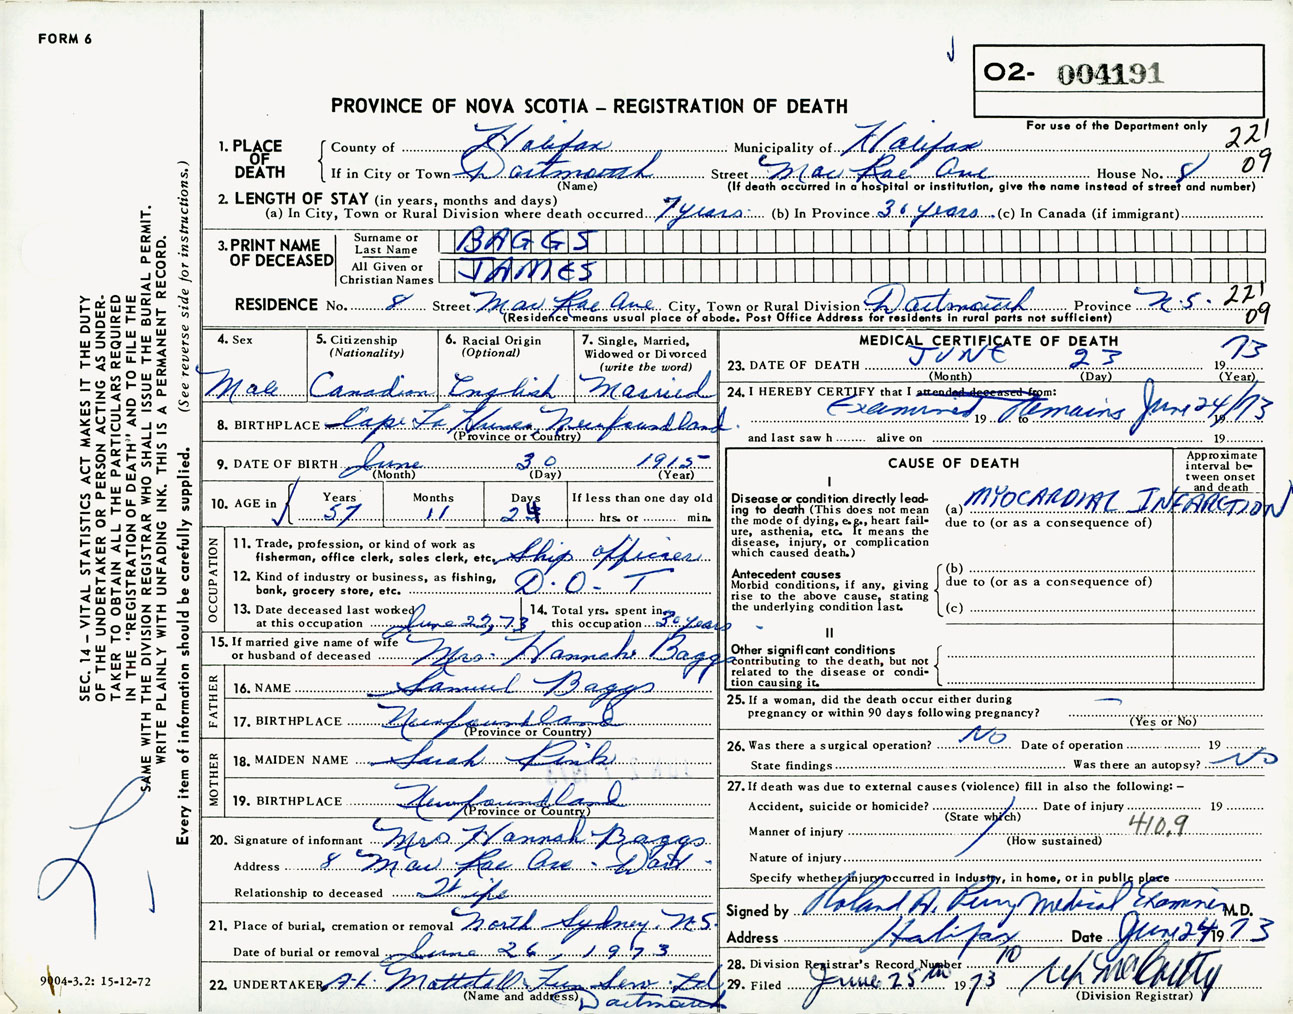 FORM 6
O2- 004191
PROVINCE OF NOVA SCOTIA – REGISTRATION OF DEATH
For use of the Department only
221
09
1. PLACE OF DEATH
County of Halifax Municipality of Halifax
If in City or Town Dartmouth Street Mac Rae Ave House No. 8
(Name) (If death occurred in a hospital or institution, give the name instead of street and number)
2. LENGTH OF STAY (in years, months and days)
(a) In City, Town or Rural Division where death occurred 7 years (b) In Province 30 years (c) In Canada (if immigrant)
3. PRINT NAME OF DECEASED
Surname or Last Name BAGGS
All Given or Christian Names JAMES
RESIDENCE No. 8 Street Mac Rae Ave City, Town or Rural Division Dartmouth Province N.S. 221
09
(Residence means usual place of abode. Post Office Address for residents in rural parts not sufficient)
4. Sex
Male
5. Citizenship
(Nationality)
Canadian
6. Racial Origin
(Optional)
English
7. Single, Married,
Widowed or Divorced
(write the word)
Married
8. BIRTHPLACE Cape La Hune Newfoundland
(Province or Country)
9. DATE OF BIRTH June 30 1915
(Month) (Day) (Year)
10. AGE in
Years 57
Months 11
Days 24
If less than one day old
hrs. or min.
OCCUPATION
11. Trade, profession, or kind of work as
fisherman, office clerk, sales clerk, etc. Ship officer
12. Kind of industry or business, as fishing,
bank, grocery store, etc. D.O.T
13. Date deceased last worked
at this occupation June 22, 73
14. Total yrs. spent in
this occupation 30 years
15. If married give name of wife
or husband of deceased Mrs. Hannah Baggs
FATHER
16. NAME Samuel Baggs
17. BIRTHPLACE Newfoundland
(Province or Country)
MOTHER
18. MAIDEN NAME Sarah Pink
19. BIRTHPLACE Newfoundland
(Province or Country)
20. Signature of informant Mrs Hannah Baggs
Address 8 Mac Rae Ave - Dart -
Relationship to deceased Wife
21. Place of burial, cremation or removal North Sydney, N.S.
Date of burial or removal June 26, 1973
22. UNDERTAKER A.L. Mattatall Fun Serv. Ltd
(Name and address) Dartmouth
MEDICAL CERTIFICATE OF DEATH
23. DATE OF DEATH JUNE 23 1973
(Month) (Day) (Year)
24. I HEREBY CERTIFY that I attended deceased from:
Examined 19 to Remains June 24/73 19
and last saw h alive on 19
CAUSE OF DEATH
Approximate
interval be-
tween onset
and death
I
Disease or condition directly lead-
ing to death (This does not mean
the mode of dying, e.g., heart fail-
ure, asthenia, etc. It means the
disease, injury, or complication
which caused death.)
(a) MYOCARDIAL INFARCTION
due to (or as a consequence of)
Antecedent causes
Morbid conditions, if any, giving
rise to the above cause, stating
the underlying condition last.
(b)
due to (or as a consequence of)
(c)
II
Other significant conditions
contributing to the death, but not
related to the disease or condi-
tion causing it.
25. If a woman, did the death occur either during
pregnancy or within 90 days following pregnancy? —
(Yes or No)
26. Was there a surgical operation? NO Date of operation 19
State findings Was there an autopsy? No
27. If death was due to external causes (violence) fill in also the following: –
Accident, suicide or homicide? Date of injury 19
(State which)
Manner of injury 410.9
(How sustained)
Nature of injury
Specify whether injury occurred in industry, in home, or in public place
Signed by Roland A. Perry Medical Examiner M.D.
Address Halifax Date June 24 1973
28. Division Registrar's Record Number 70
29. Filed June 25th 1973
(Division Registrar)
SEC. 14 – VITAL STATISTICS ACT MAKES IT THE DUTY
OF THE UNDERTAKER OR PERSON ACTING AS UNDER-
TAKER TO OBTAIN ALL THE PARTICULARS REQUIRED
IN THE "REGISTRATION OF DEATH" AND TO FILE THE
SAME WITH THE DIVISION REGISTRAR WHO SHALL ISSUE THE BURIAL PERMIT.
WRITE PLAINLY WITH UNFADING INK. THIS IS A PERMANENT RECORD.
Every item of information should be carefully supplied. (See reverse side for instructions.)
9004-3.2: 15-12-72